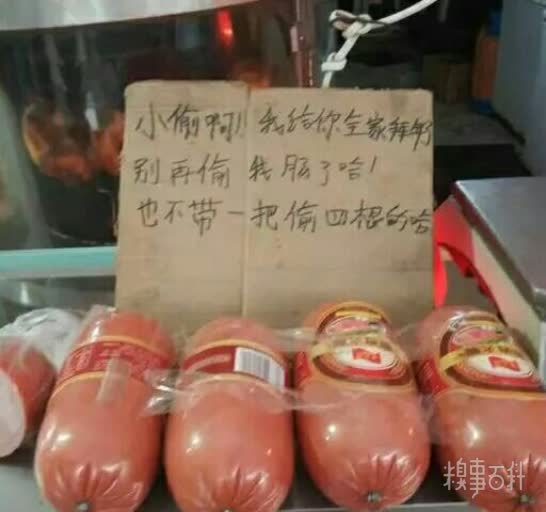 小偷啊!我给你全家拜年
别再偷我肠了哈!
也不带一把偷四根的哈
糗事百科